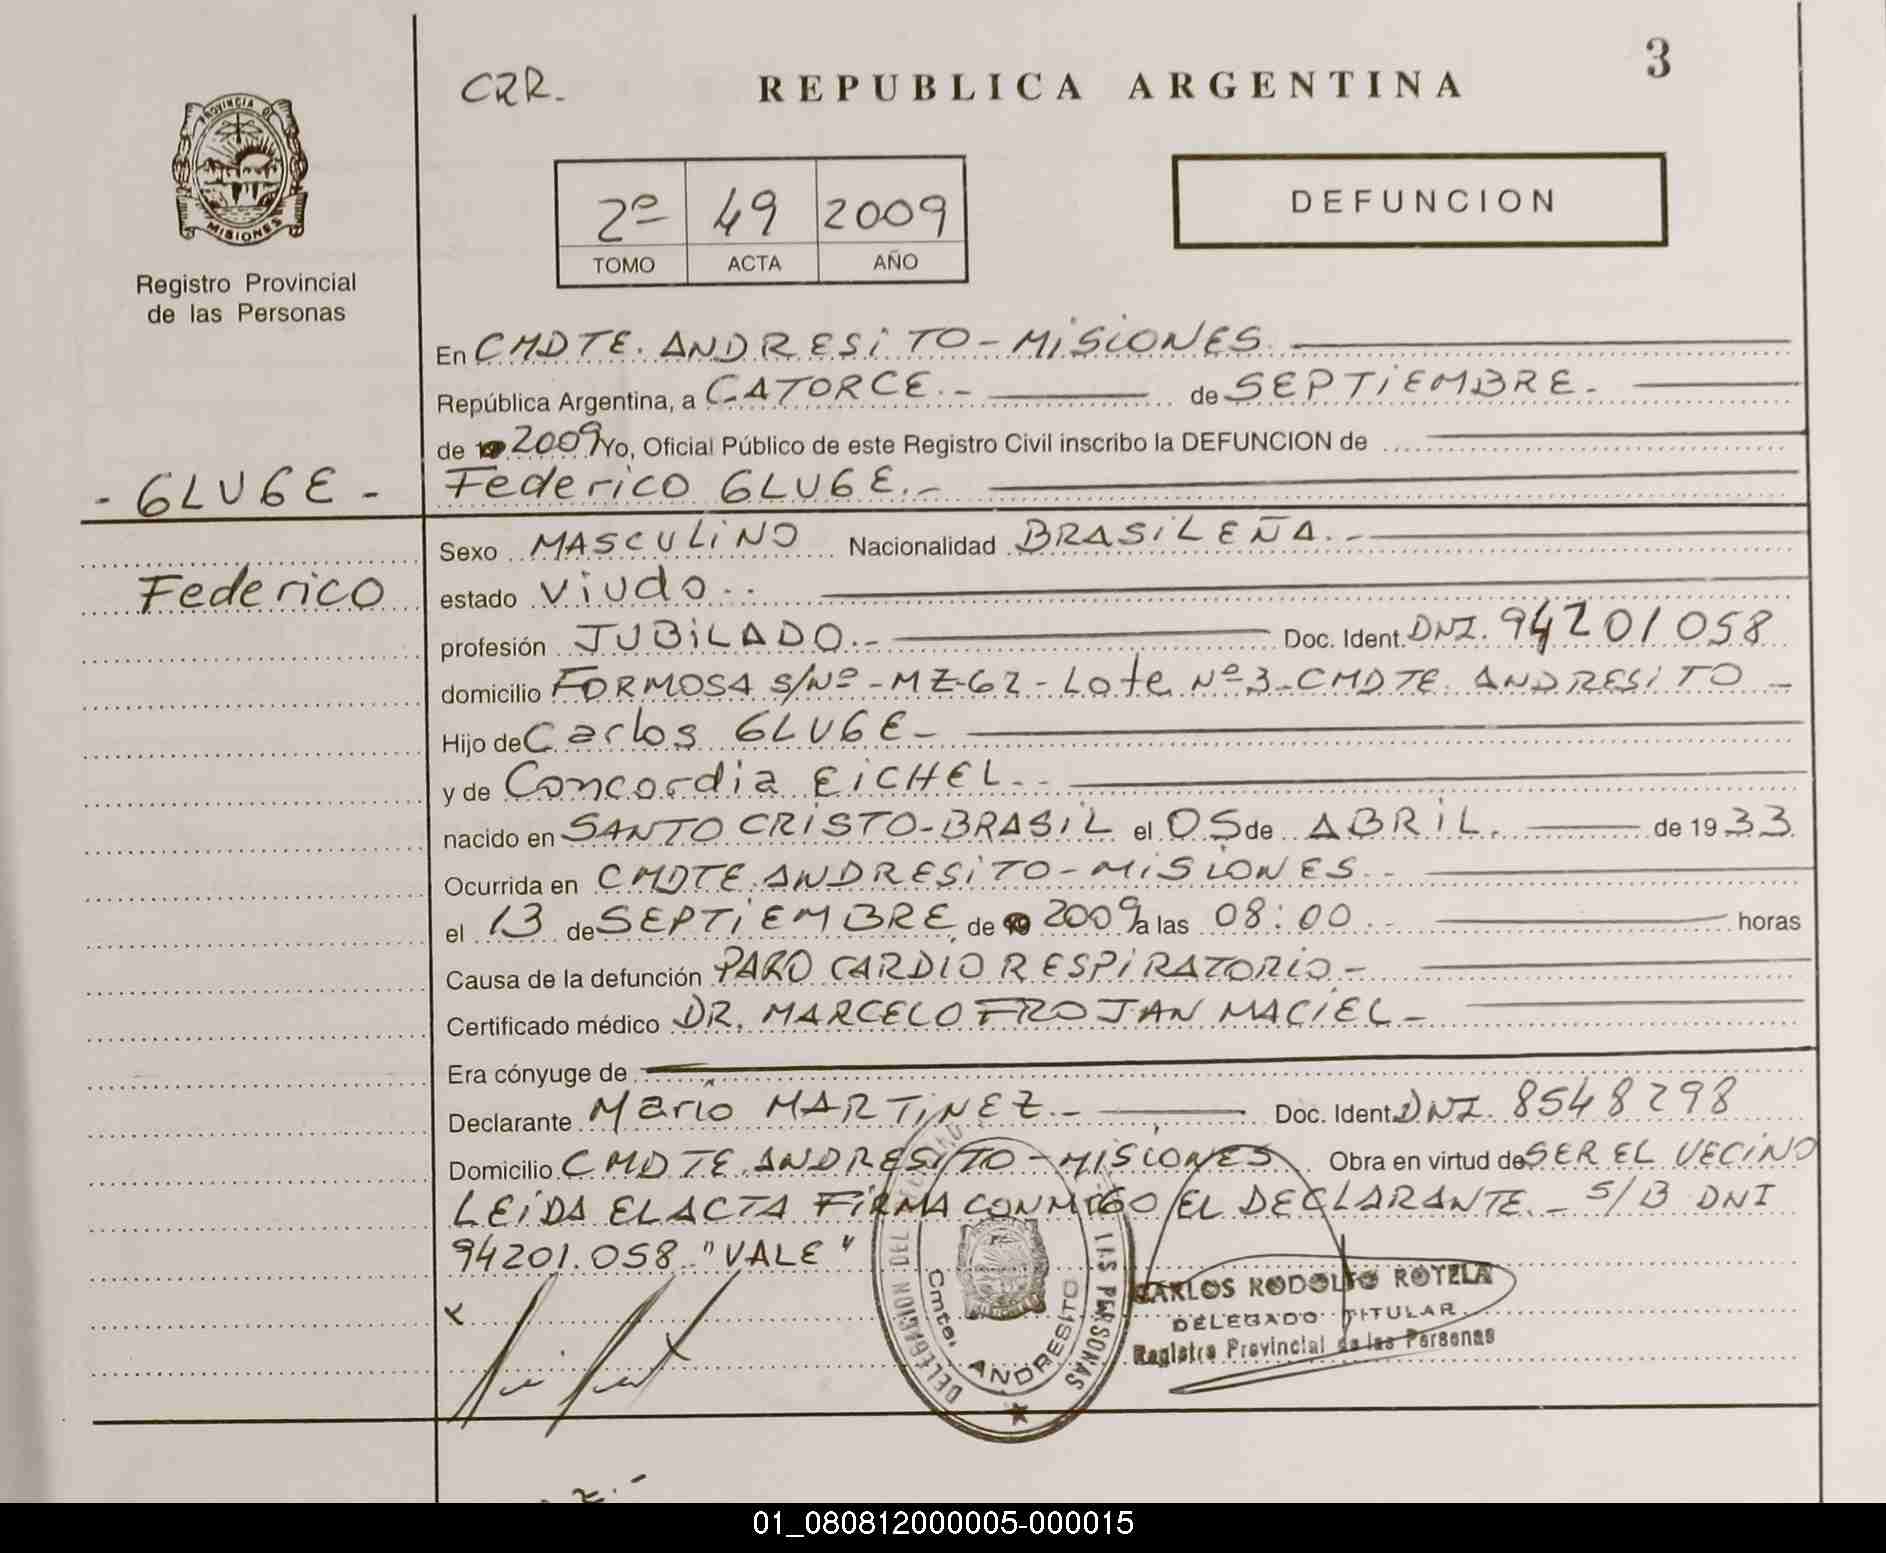 CRR.
REPUBLICA ARGENTINA
3
PROVINCIA D
MISIONES
Registro Provincial
de las Personas
2º 49 2009
TOMO ACTA AÑO
DEFUNCION
En CMDTE. ANDRESiTO - MiSiONES
República Argentina, a CATORCE.- de SEPTiEMBRE.
de 19 2009 Yo, Oficial Público de este Registro Civil inscribo la DEFUNCION de
- GLUGE - Federico GLUGE.-
Sexo MASCULiNO Nacionalidad BRASiLEÑA.-
Federico estado Viudo..
profesión JUBiLADO.- Doc. Ident. DNI. 94201058
domicilio FORMOSA S/Nº - MZ-62 - Lote Nº 3 - CMDTE. ANDRESiTO -
Hijo de Carlos GLUGE -
y de Concordia EiCHEL.-
nacido en SANTO CRiSTO - BRASiL el 05 de ABRiL. de 1933
Ocurrida en CMDTE. ANDRESiTO - MiSiONES.-
el 13 de SEPTiEMBRE, de 19 2009 a las 08:00.- horas
Causa de la defunción PARO CARDIO RESPiRATORiO -
Certificado médico DR. MARCELO FROJAN MACiEL -
Era cónyuge de
Declarante Mario MARTiNEZ.- Doc. Ident. DNI. 8548298
Domicilio CMDTE. ANDRESiTO - MiSiONES Obra en virtud de SER EL VECiNO
LEiDA EL ACTA FiRMA CONMiGO EL DECLARANTE. - S/B DNI
94201.058 "VALE"
x
DELEGACION DEL LAS PERSONAS
Cmte. ANDRESITO
CARLOS RODOLFO ROTELA
DELEGADO TITULAR
Registro Provincial de las Personas
01_080812000005-000015